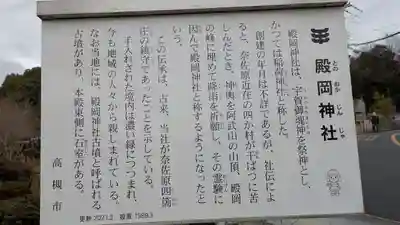 殿岡神社
との おか じん じゃ
殿岡神社は、宇賀御魂神を祭神とし、
かつては稲荷神社と称した。
創建の年月は不詳であるが、社伝によ
ると、奈佐原近在の四か村が干ばつに苦
しんだとき、神輿を阿武山の山頂、殿岡
の峰に埋めて降雨を祈願し、その霊験に
因んで殿岡神社と称するようになったと
いう。
この伝承は、古来、当社が奈佐原四箇
荘の鎮守であったことを示している。
手入れされた境内は濃い緑につつまれ、
今も地域の人々から親しまれている。
なお当地には、殿岡神社古墳と呼ばれる
古墳があり、本殿東側に石室がある。
高槻市
更新 2021.2 設置 1989.3